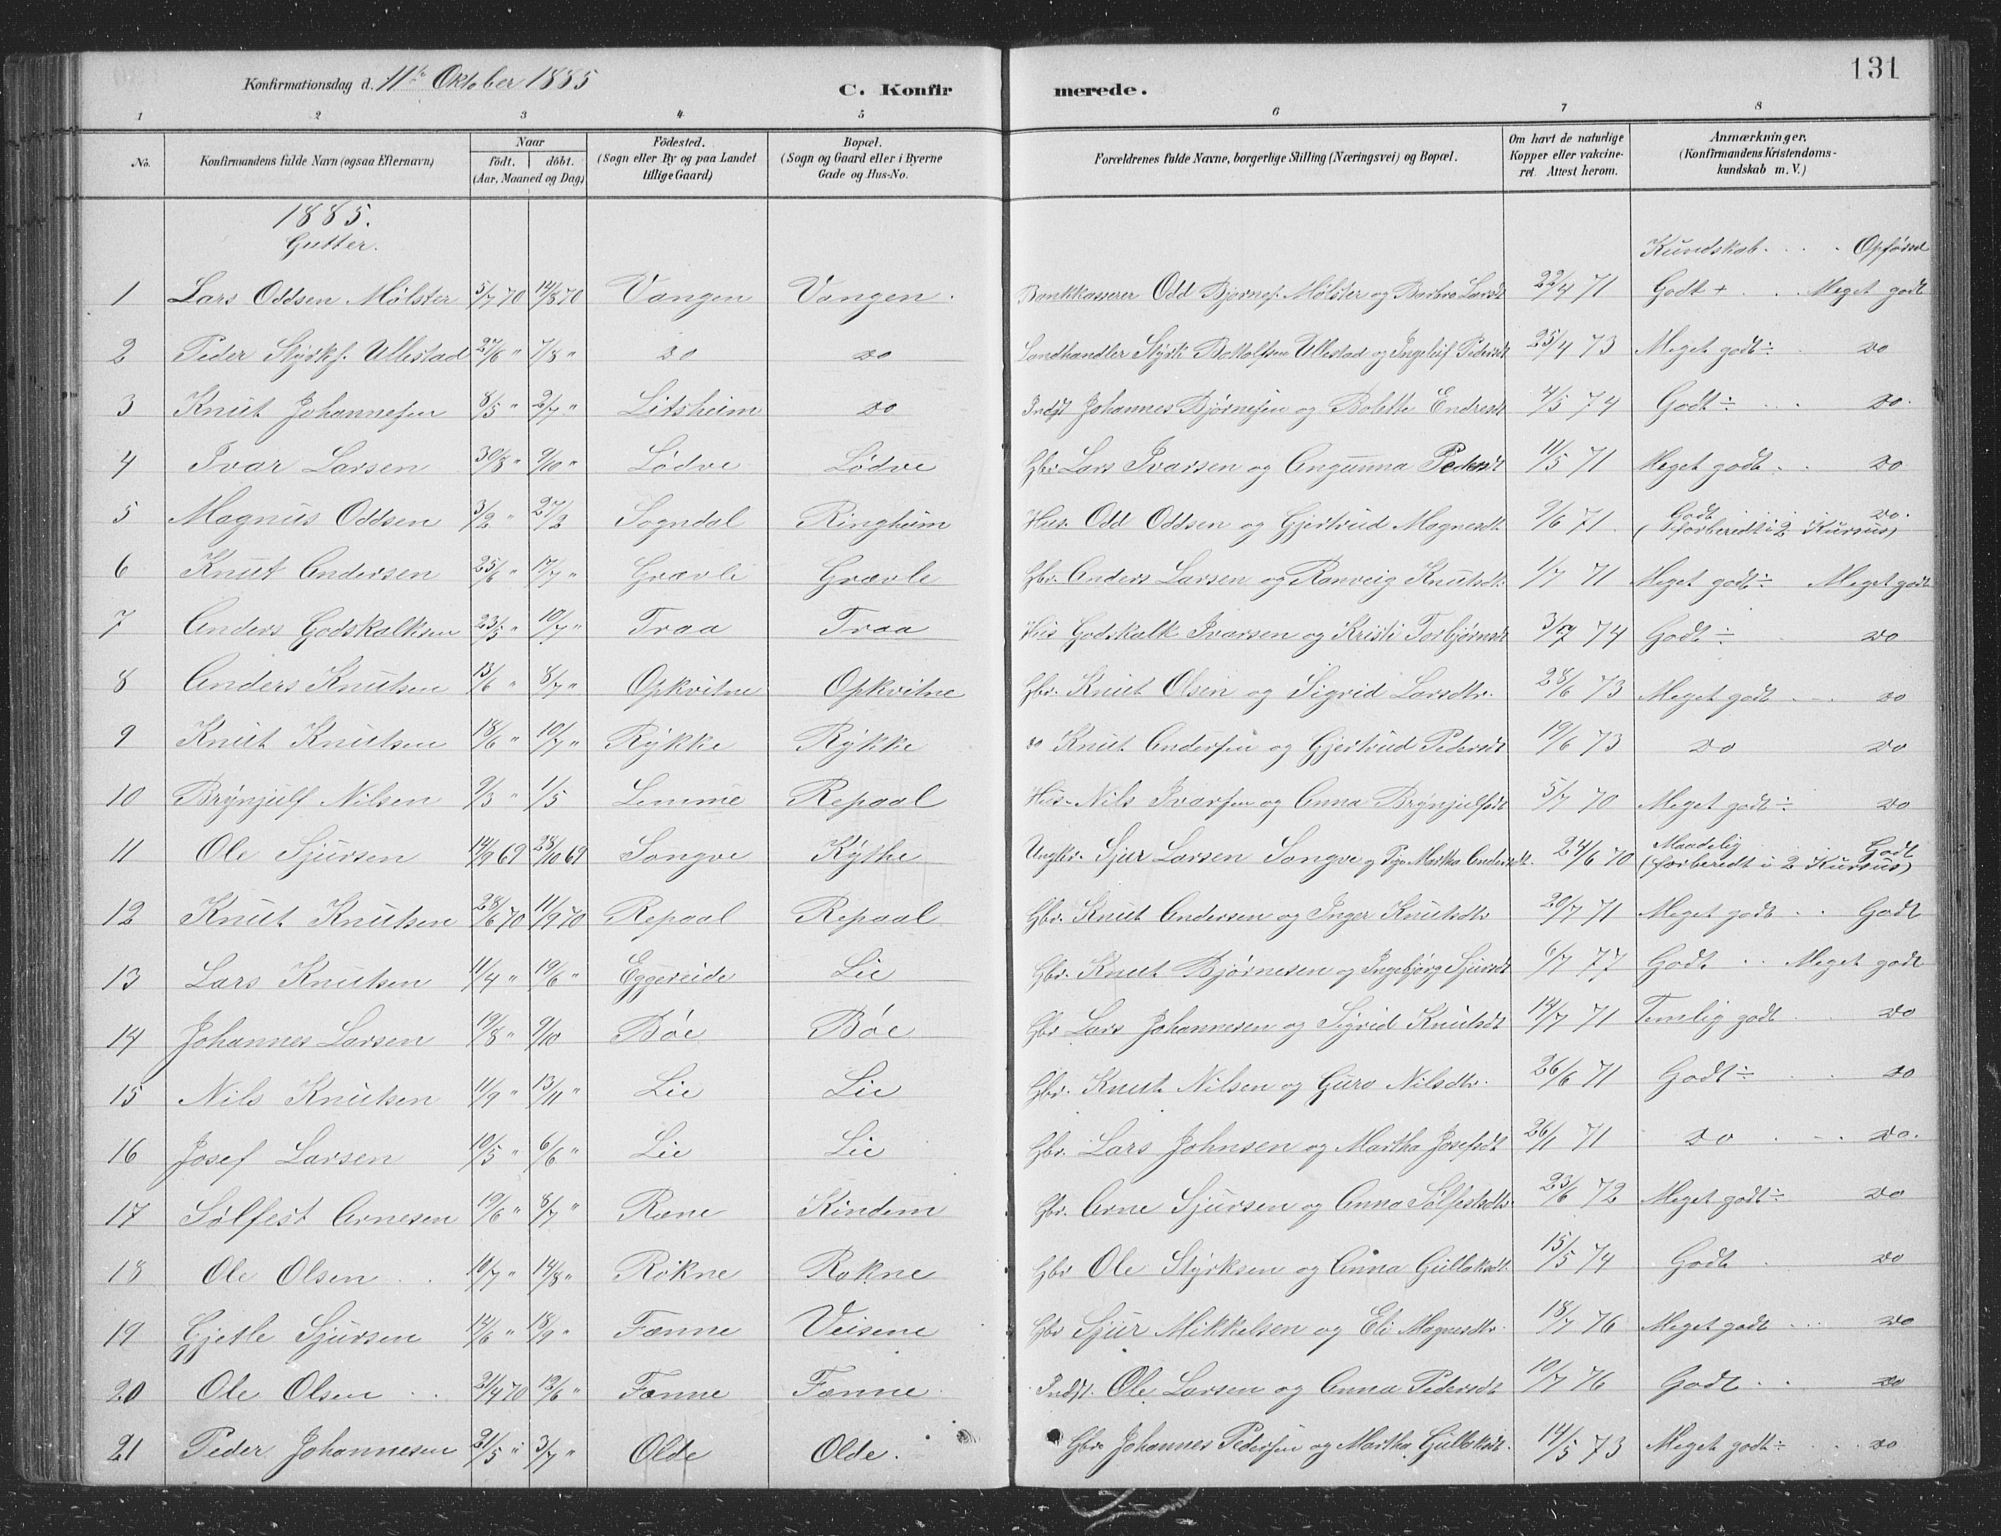 131
Konfirmationsdag d. 11te Oktober 1885 C. Konfirmerede.
1 2 3 4 5 6 7 8
No. Konfirmandens fulde Navn (ogsaa Efternavn) Naar födt. döbt. (Aar, Maaned og Dag) Födested. (Sogn eller By og paa Landet tillige Gaard) Bopæl. (Sogn og Gaard eller i Byerne Gade og Hus-No. Forældrenes fulde Navne, borgerlige Stilling (Næringsvei) og Bopæl. Om havt de naturlige Kopper eller vakcineret. Attest herom. Anmærkninger. (Konfirmandens Kristendomskundskab m. V.)
1885.
Gutter. Kundskab. Opførsel
1 Lars Oddsen Mølster 5/7 70 14/8 70 Vangen Vangen. Bankkasserer Odd Bjørnes. Mølster og Barbra Larsdt 22/4 71 Godt + Meget godt
2 Peder Styrks. Ullestad 27/6 " 7/8 " do do Landhandler Styrk Bottolfsen Ullestad og Ingeleif Pedersdt 25/4 73 Meget godt ÷ do
3 Knut Johannesen 8/5 " 2/7 " Litsheim do Indst Johannes Bjørnesen og Bolette Endresdt 4/5 74 Godt ÷ do.
4 Ivar Larsen 30/8 " 9/10 " Lødve Lødve Gbr. Lars Ivarsen og Angunna Pedersdt 11/5 71 Meget godt do
5 Magnus Oddsen 3/2 " 27/2 Sogndal Ringheim Hus. Odd Oddsen og Gjertrud Magnesdt. 9/6 71 Godt do. (forberedt i 2 Kursus)
6 Knut Andersen 25/6 " 17/7 " Grævle Grævle Gbr. Anders Larsen og Ranveig Knutsdt. 1/7 71 Meget godt ÷ Meget godt
7 Anders Godskalksen 23/5 " 10/7 " Traa Traa Hus Godskalk Ivarsen og Kristi Torbjørnsdt 3/7 74 Godt ÷ do
8 Anders Knutsen 13/6 " 8/7 " Opkvitne Opkvitne Gbr. Knut Olsen og Sigrid Larsdtr. 28/6 73 Meget godt do
9 Knut Knutsen 18/6 " 10/7 " Rykke Rykke do Knut Andersen og Gjertrud Pedersdt 19/6 73 do do
10 Brynjulf Nilsen 9/3 " 1/5 Lemme Repaal Hus. Nils Ivarsen og Anna Brynjulfsdt 5/7 70 Meget godt ÷ do
11 Ole Sjursen 14/9 69 28/10 69 Songve Kythe Ungkr. Sjur Larsen Songve og Pige Martha Andersdt. 24/6 70 Maadelig Godt (forberedt i 2 Kursus)
12 Knut Knutsen 28/6 70 11/9 70 Repaal Repaal Gbr. Knut Andersen og Inger Knutsdtr 20/7 71 Meget godt Godt
13 Lars Knutsen 11/4 " 19/6 " Eggereide Lie Gbr. Knut Bjørnesen og Ingebjørg Sjursdt 6/7 77 Godt Meget godt
14 Johannes Larsen 19/8 " 9/10 Bøe Bøe Gbr Lars Johannesen og Sigrid Knutsdt 14/7 71 Temlig godt do
15 Nils Knutsen 11/9 " 13/11 " Lie Lie Gbr. Knut Nilsen og Guro Nilsdtr. 26/6 71 Godt ÷ do
16 Josef Larsen 10/5 " 6/6 " Lie Lie Gbr. Lars Johnsen og Martha Josefsdt 26/1 71 do do.
17 Sølfest Arnesen 19/6 " 8/7 " Rene Kindem Gbr. Arne Sjursen og Anna Sølfestsdtr. 23/6 72 Meget godt ÷ do
18 Ole Olsen 10/7 " 14/8 " Rokne Rokne Gbr Ole Styrksen og Anna Gulleksdt. 15/5 74 Godt do
19 Gjetle Sjursen 14/6 " 18/9 " Fenne Veisene Gbr Sjur Mikkelsen og Eli Magnesdtr. 18/7 76 Meget godt do
20 Ole Olsen 21/4 70 12/6 " Fenne Fenne Indst. Ole Larsen og Anna Pedersdt 19/7 76 Godt do
21 Peder Johannesen 21/5 " 3/7 " Olde Olde. Gbr. Johannes Pedersen og Martha Gulleksdt. 14/5 73 Meget godt ÷ do